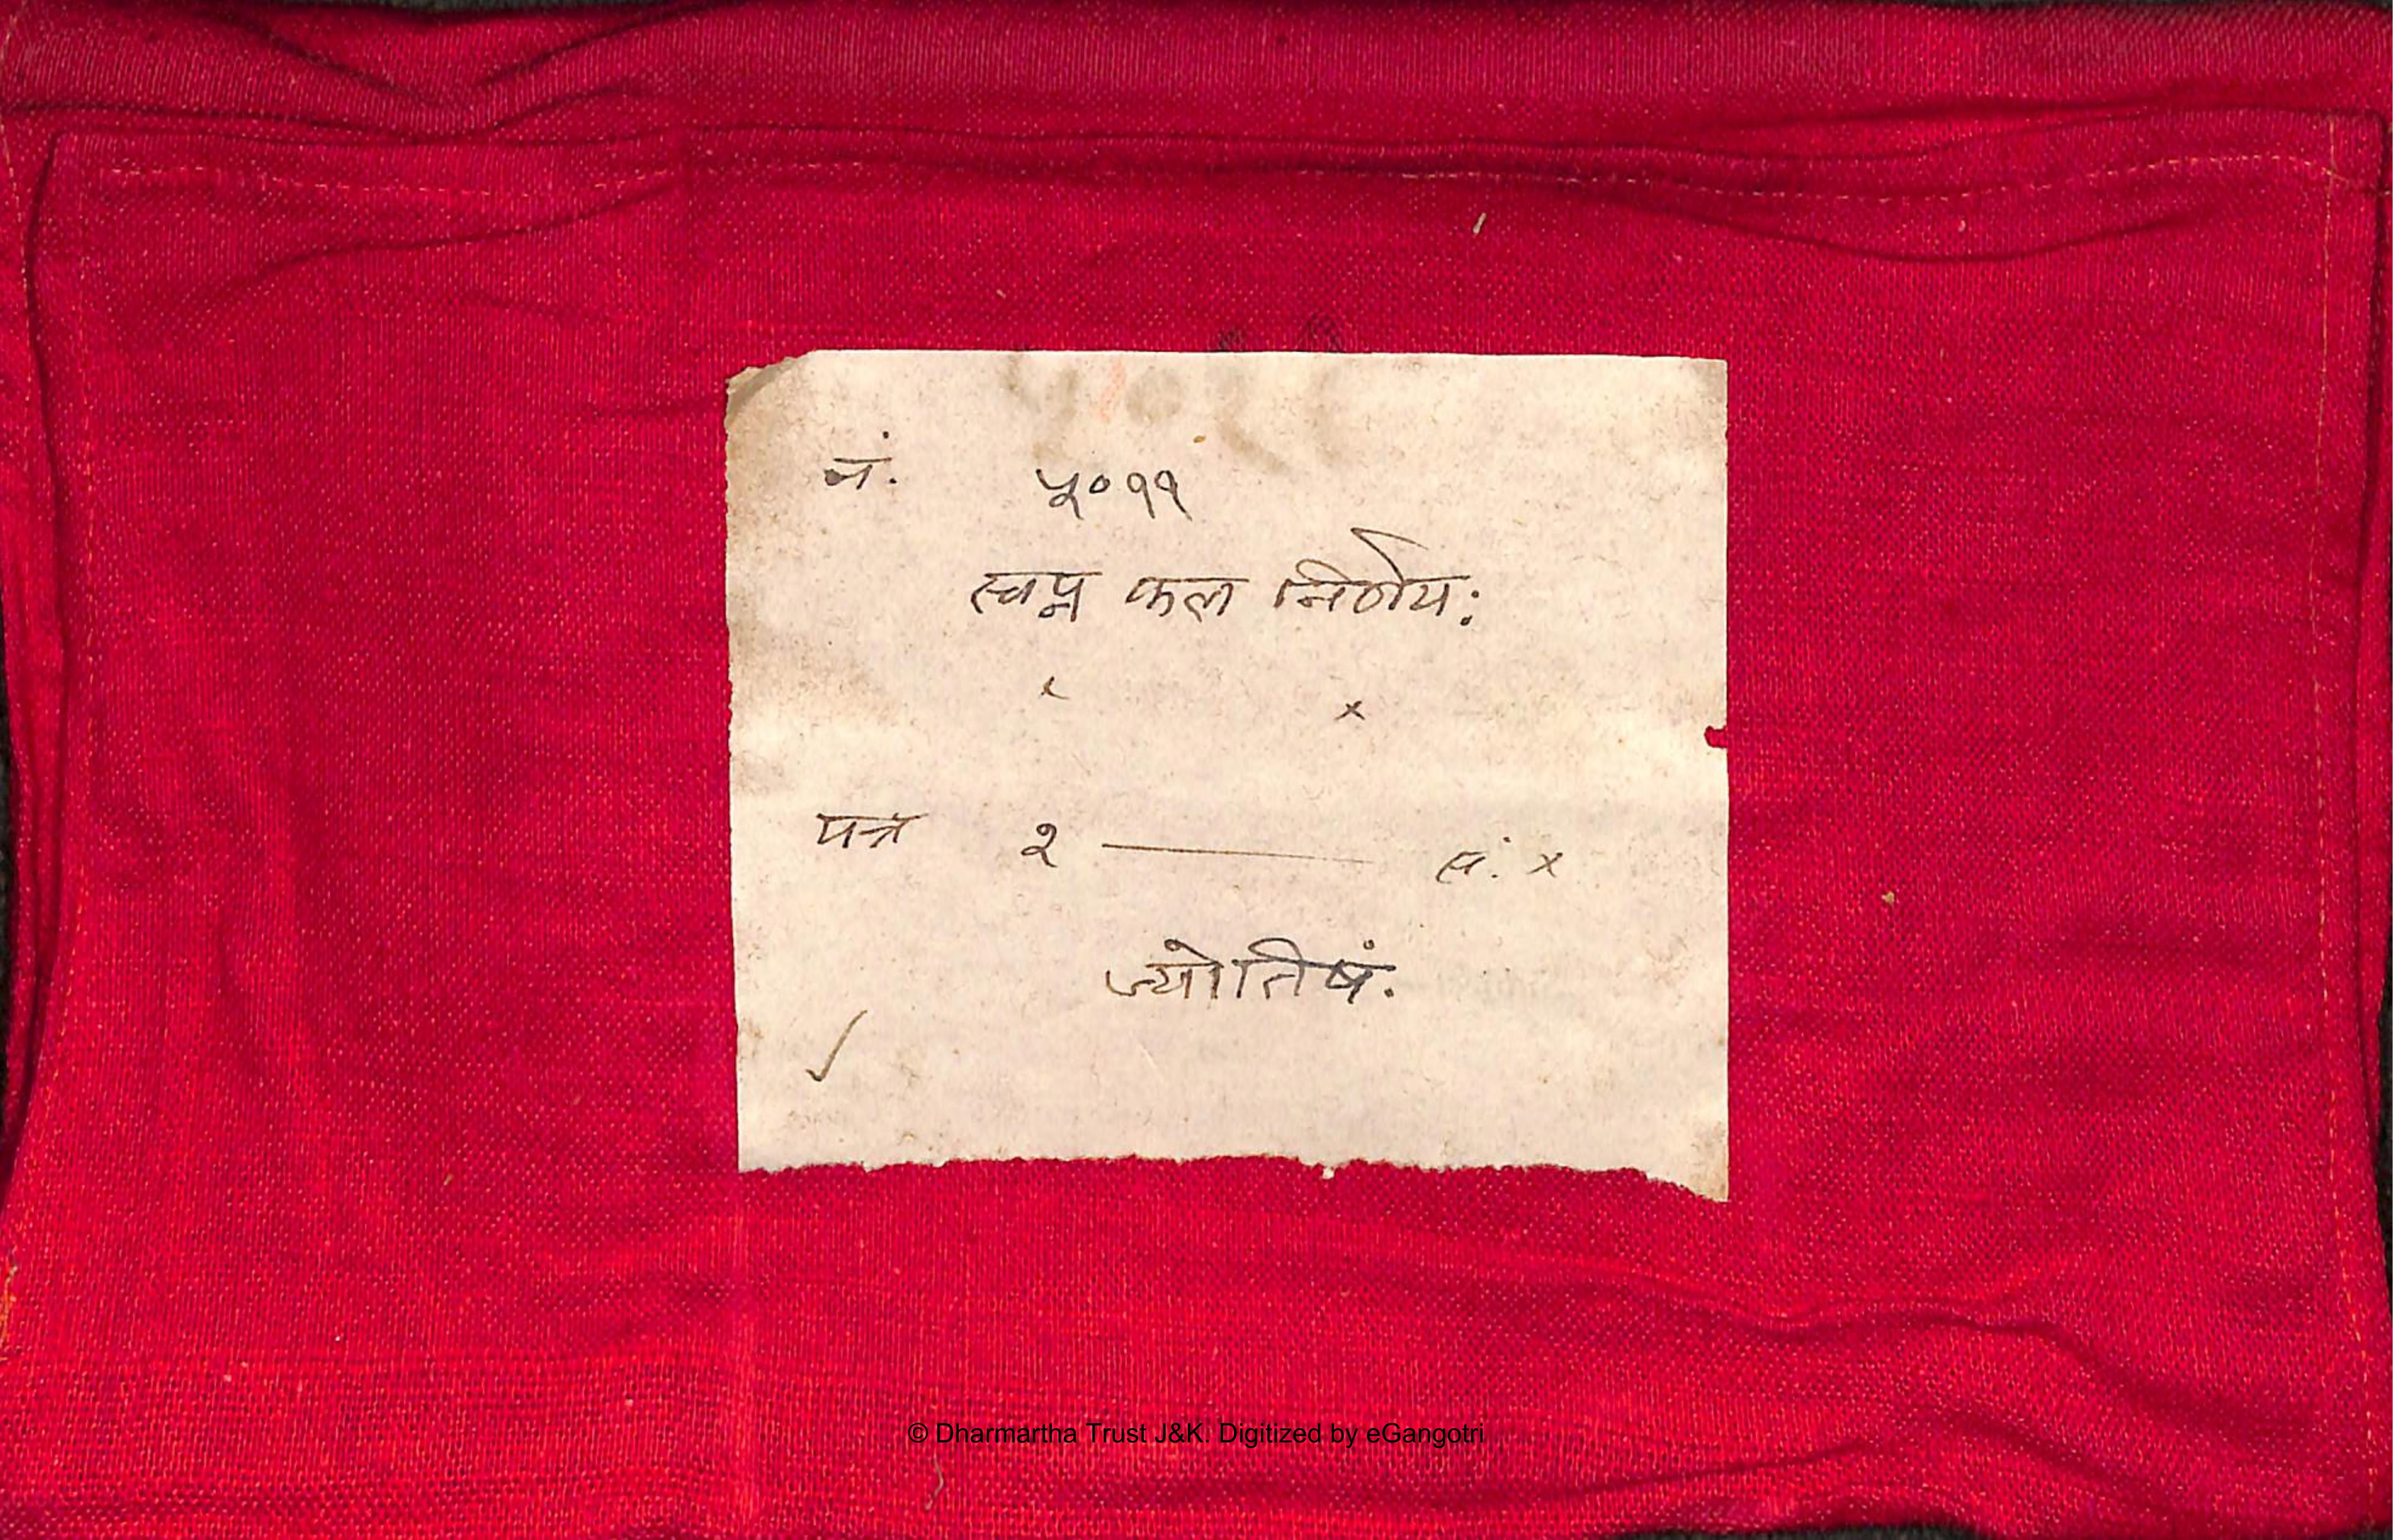 नं. ५०११
स्वप्न फल निर्णयः
x
पत्र २ — सं. x
ज्योतिषं.
© Dharmartha Trust J&K. Digitized by eGangotri